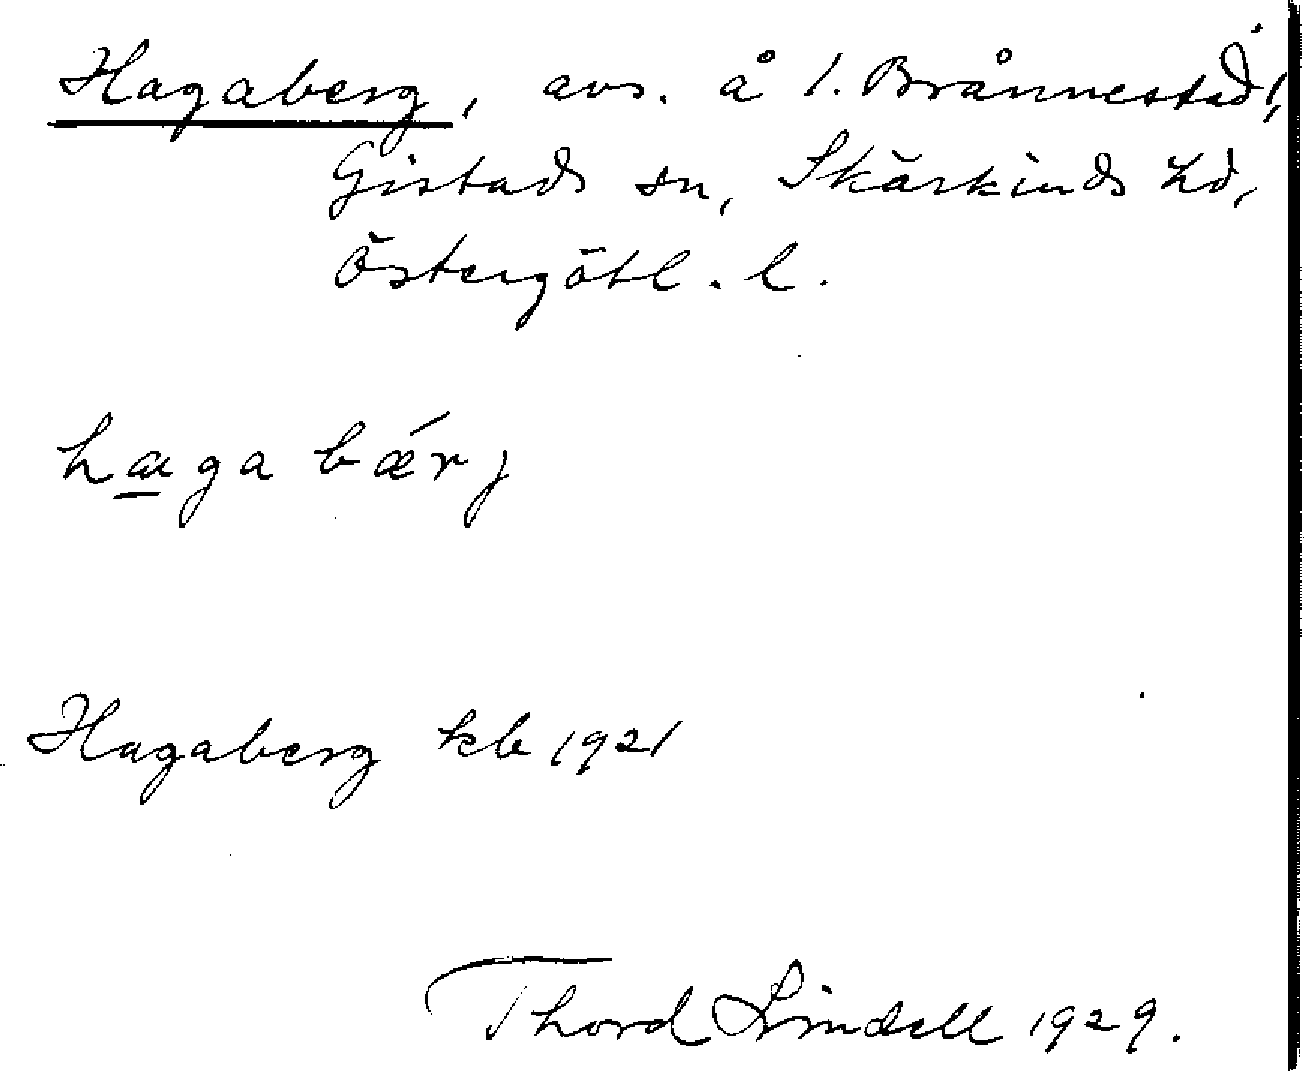 Hagaberg, avs. å 1. Brånnestad 1,
Gistads sn, Skärkinds hd,
Östergötl. l.
haga bǽrj
Hagaberg kb 1921
Thord Lindell 1929.